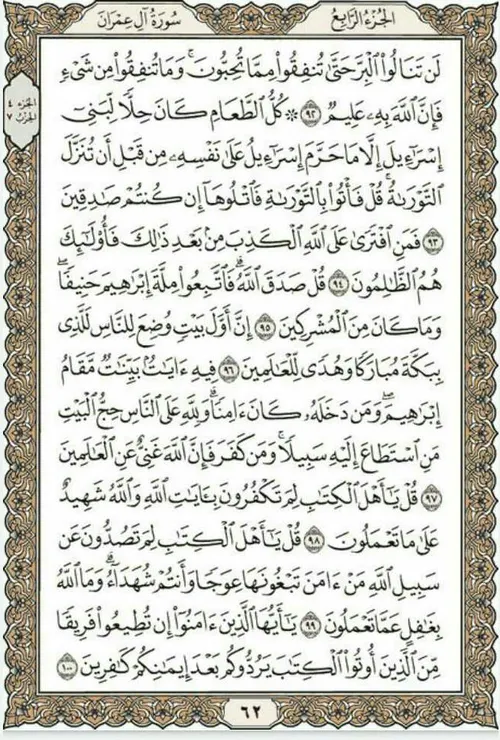 الجُزْءُ الرَّابِعُ
سُورَةُ آلِ عِمْرَانَ
الجزء ٤
الحزب ٧
لَن تَنَالُوا۟ ٱلْبِرَّ حَتَّىٰ تُنفِقُوا۟ مِمَّا تُحِبُّونَ ۚ وَمَا تُنفِقُوا۟ مِن شَىْءٍ
فَإِنَّ ٱللَّهَ بِهِۦ عَلِيمٌ ٩٢ ۞ كُلُّ ٱلطَّعَامِ كَانَ حِلًّا لِّبَنِىٓ
إِسْرَٰٓءِيلَ إِلَّا مَا حَرَّمَ إِسْرَٰٓءِيلُ عَلَىٰ نَفْسِهِۦ مِن قَبْلِ أَن تُنَزَّلَ
ٱلتَّوْرَىٰةُ ۗ قُلْ فَأْتُوا۟ بِٱلتَّوْرَىٰةِ فَٱتْلُوهَآ إِن كُنتُمْ صَٰدِقِينَ
٩٣ فَمَنِ ٱفْتَرَىٰ عَلَى ٱللَّهِ ٱلْكَذِبَ مِنۢ بَعْدِ ذَٰلِكَ فَأُو۟لَٰٓئِكَ
هُمُ ٱلظَّٰلِمُونَ ٩٤ قُلْ صَدَقَ ٱللَّهُ ۗ فَٱتَّبِعُوا۟ مِلَّةَ إِبْرَٰهِيمَ حَنِيفًا ۖ
وَمَا كَانَ مِنَ ٱلْمُشْرِكِينَ ٩٥ إِنَّ أَوَّلَ بَيْتٍ وُضِعَ لِلنَّاسِ لَلَّذِى
بِبَكَّةَ مُبَارَكًا وَهُدًى لِّلْعَٰلَمِينَ ٩٦ فِيهِ ءَايَٰتٌۢ بَيِّنَٰتٌ مَّقَامُ
إِبْرَٰهِيمَ ۖ وَمَن دَخَلَهُۥ كَانَ ءَامِنًا ۗ وَلِلَّهِ عَلَى ٱلنَّاسِ حِجُّ ٱلْبَيْتِ
مَنِ ٱسْتَطَاعَ إِلَيْهِ سَبِيلًا ۚ وَمَن كَفَرَ فَإِنَّ ٱللَّهَ غَنِىٌّ عَنِ ٱلْعَٰلَمِينَ
٩٧ قُلْ يَٰٓأَهْلَ ٱلْكِتَٰبِ لِمَ تَكْفُرُونَ بِـَٔايَٰتِ ٱللَّهِ وَٱللَّهُ شَهِيدٌ
عَلَىٰ مَا تَعْمَلُونَ ٩٨ قُلْ يَٰٓأَهْلَ ٱلْكِتَٰبِ لِمَ تَصُدُّونَ عَن
سَبِيلِ ٱللَّهِ مَنْ ءَامَنَ تَبْغُونَهَا عِوَجًا وَأَنتُمْ شُهَدَآءُ ۗ وَمَا ٱللَّهُ
بِغَٰفِلٍ عَمَّا تَعْمَلُونَ ٩٩ يَٰٓأَيُّهَا ٱلَّذِينَ ءَامَنُوٓا۟ إِن تُطِيعُوا۟ فَرِيقًا
مِّنَ ٱلَّذِينَ أُوتُوا۟ ٱلْكِتَٰبَ يَرُدُّوكُم بَعْدَ إِيمَٰنِكُمْ كَٰفِرِينَ ١٠٠
٦٢